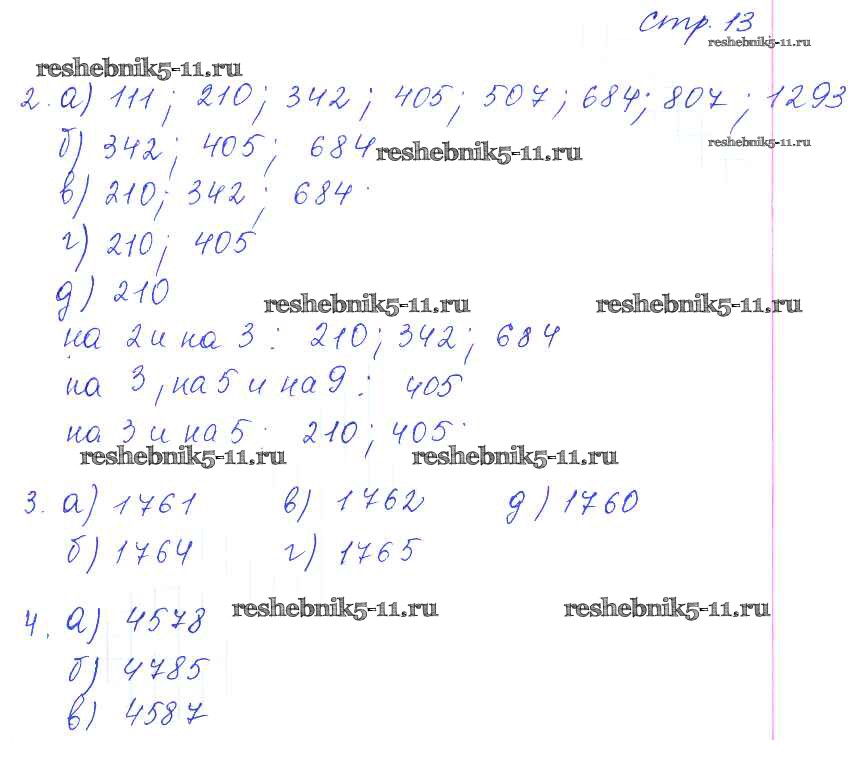 стр. 13
reshebnik5-11.ru
reshebnik5-11.ru
2. а) 111; 210; 342; 405; 507; 684; 807; 1293
б) 342; 405; 684
reshebnik5-11.ru
reshebnik5-11.ru
в) 210; 342; 684.
г) 210; 405
д) 210
reshebnik5-11.ru
reshebnik5-11.ru
на 2 и на 3: 210; 342; 684
на 3, на 5 и на 9: 405
на 3 и на 5: 210; 405.
reshebnik5-11.ru
reshebnik5-11.ru
3. а) 1761 в) 1762 д) 1760
б) 1764 г) 1765
reshebnik5-11.ru
reshebnik5-11.ru
4. а) 4578
б) 4785
в) 4587